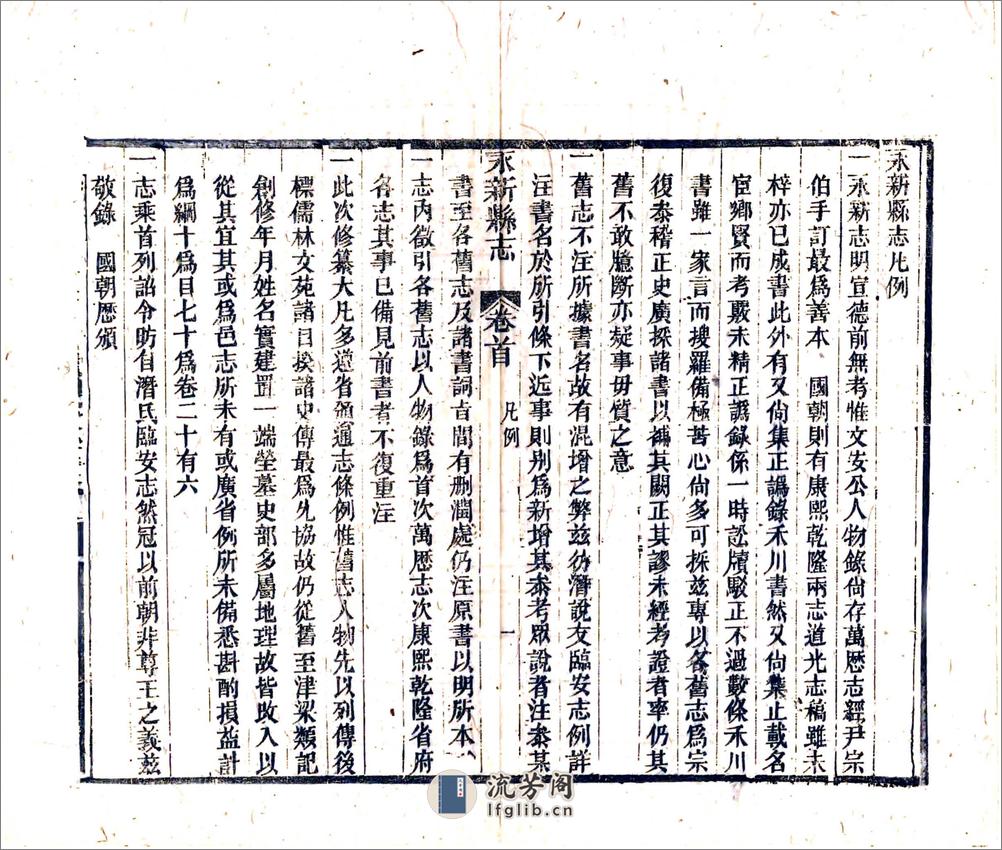 永新縣志凡例
一永新志明宣德前無考惟文安公人物錄尙存萬厯志經尹宗
伯手訂最爲善本　國朝則有康熙乾隆兩志道光志稿雖未
梓亦已成書此外有又尙集正譌錄禾川書然又尙集止載名
宦鄕賢而考覈未精正譌錄係一時訟牘駁正不過數條禾川
書雖一家言而搜羅備極苦心尙多可採茲專以各舊志爲宗
復叅稽正史廣採諸書以補其闕正其謬未經考證者率仍其
舊不敢臆斷亦疑事毋質之意
一舊志不注所據書名故有混增之弊茲仿潛說友臨安志例詳
注書名於所引條下近事則别爲新增其叅考眾說者注叅某
書至各舊志及諸書詞旨間有删潤處仍注原書以明所本
永新縣志　卷首　凡例　一
一志內徵引各舊志以人物錄爲首次萬厯志次康熙乾隆省府
各志其事已備見前書者不復重注
一此次修纂大凡多遵省頒通志條例惟舊志人物先以列傳後
標儒林文苑諸目揆諸史傳最爲允協故仍從舊至津梁類記
創修年月姓名實建置一端塋墓史部多屬地理故皆改入以
從其宜其或爲邑志所未有或廣省例所未備悉斟酌損益計
爲綱十爲目七十爲卷二十有六
一志乘首列詔令昉自潛氏臨安志然冠以前朝非尊王之義茲
敬錄　國朝厯頒
流芳阁
lfglib.cn